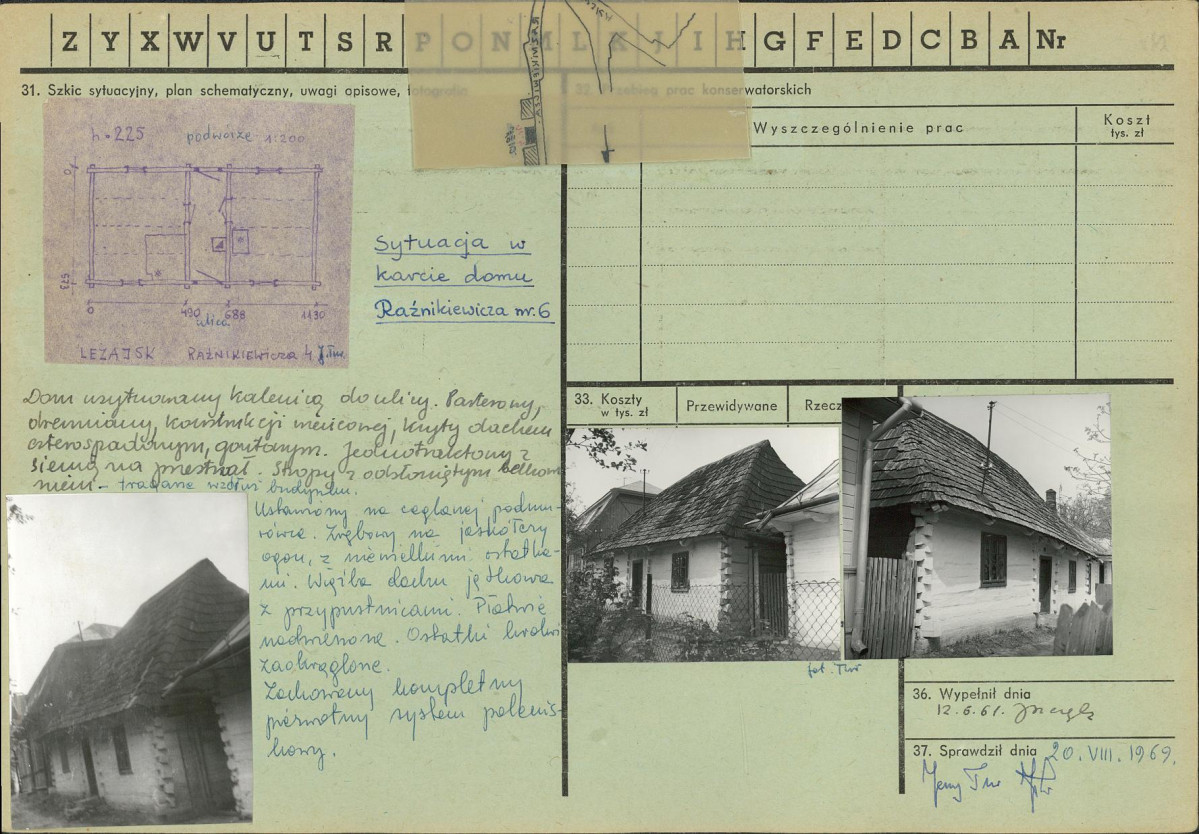 Z Y X W V U T S R P O N M L K J I H G F E D C B A Nr
31. Szkic sytuacyjny, plan schematyczny, uwagi opisowe, fotografie
32. Przebieg prac konserwatorskich
Wyszczególnienie prac
Koszt
tys. zł
h=225 podwórze 1:200
0
573
0 490 688 1130
ulica
LEŻAJSK RAŹNIKIEWICZA 4 J.Tur.
Sytuacja w
karcie domu
Raźnikiewicza nr. 6
Dom usytuowany kalenicą do ulicy. Parterowy,
drewniany, konstrukcji wieńcowej, kryty dachem
czterospadowym, gontowym. Jednotraktowy z
sienią na przestrzał. Stropy z odsłoniętym belko-
waniem - tragarze wzdłuż budynku.
Ustawiony na ceglanej podmu-
rówce. Zrębowy na jaskółczy
ogon, z niewielkimi ostatka-
mi. Więźba dachu jętkowa
z przypustnicami. Płatwie
nadwieszone. Ostatki krokwi
zaokrąglone.
Zachowany kompletny
pierwotny system palenis-
kowy.
33. Koszty
w tys. zł
Przewidywane
Rzecz
fot. Tur
36. Wypełnił dnia
12.6.61.
37. Sprawdził dnia 20. VIII. 1969.
Jerzy Tur